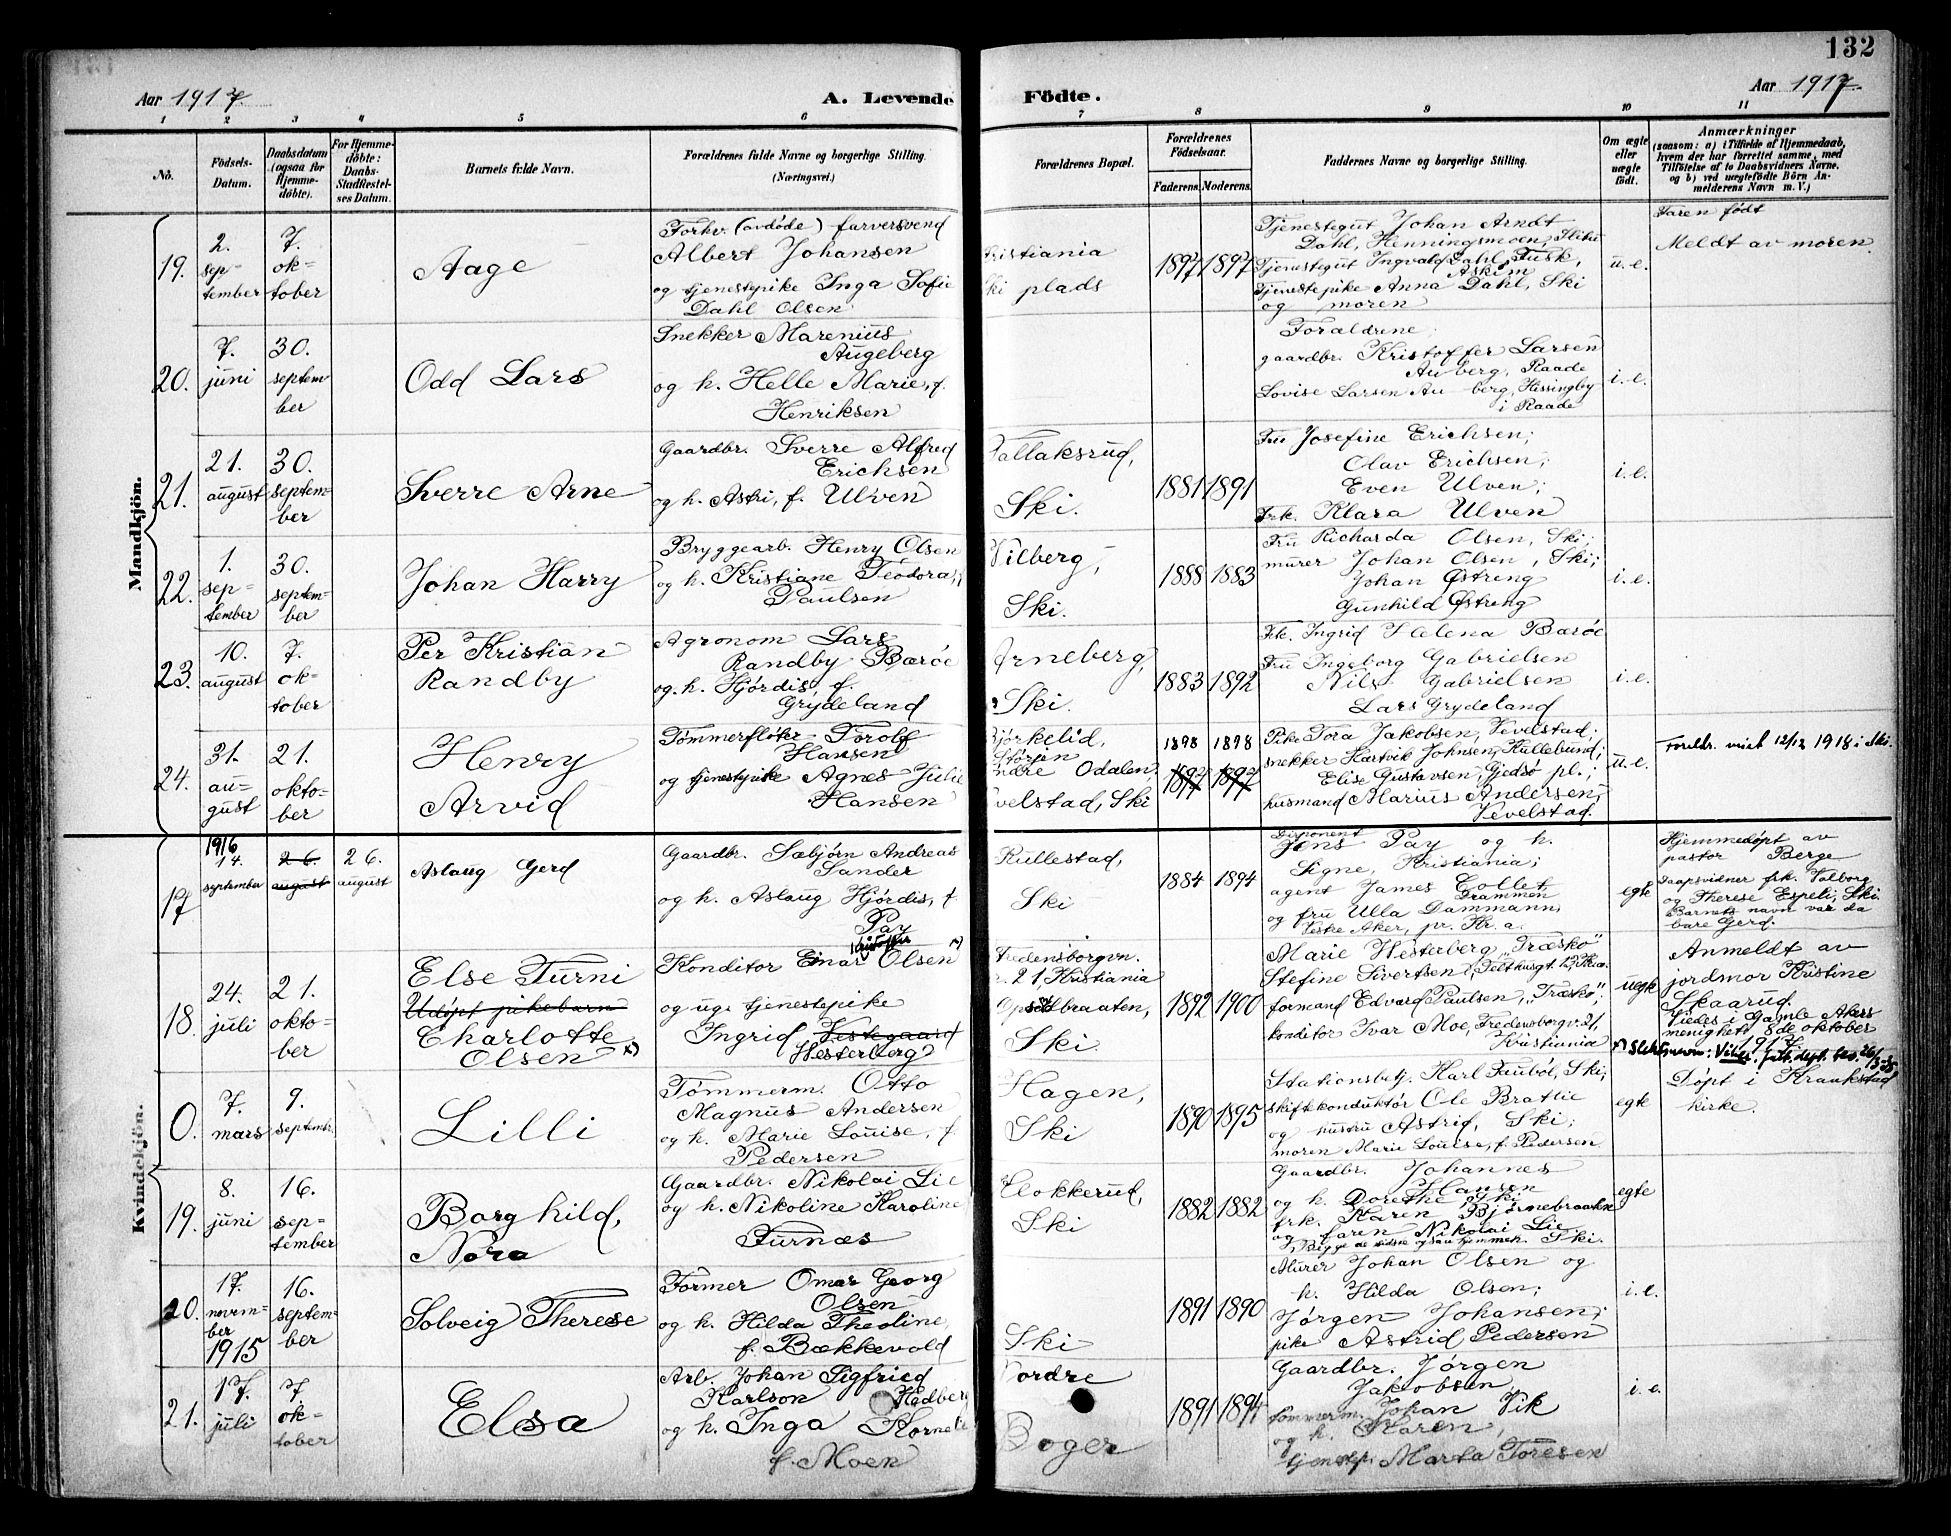 132
Aar 1917.
A. Levende Födte.
Aar 1917.
1 2 3 4 5 6 7 8 9 10 11
No.
Födsels-Datum.
Daabsdatum (ogsaa for Hjemme-döbte).
For Hjemme-döbte: Daabs-Stadfæstel-ses Datum.
Barnets fulde Navn.
Forældrenes fulde Navne og borgerlige Stilling.
(Næringsvei.)
Forældrenes Bopæl.
Forældrenes Födselsaar.
Faderens. Moderens.
Faddernes Navne og borgerlige Stilling.
Om ægte eller uægte födt.
Anmærkninger
(saasom: a) i Tilfælde af Hjemmedaab, hvem der har forrettet samme, med Tilföielse af to Daabsvidners Navne, og b) ved uægtefödte Börn An-melderens Navn m. V.)
Mandkjön.
19.
2. sep-tember
7. ok-tober
Aage
Forhv. (avdøde) farversvend
Albert Johansen
og tjenestepike Inga Sofie
Dahl Olsen
ristiania
ki plads
1897 1897
Tjenestegut Johan Arndt
Dahl, Henningsmoen, Slitu
Tjenestegut Ingvald Dahl, Tusk,
Askim
Tjenestepike Anna Dahl, Ski
og moren
u. e.
Faren født
Meldt av moren
20.
7. juni
30. septem-ber
Odd Lars
Snekker Marenius
Augeberg
og h. Helle Marie, f.
Henriksen
Forældrene
gaardbr. Kristoffer Larsen
Au berg, Raade
Lovise Larsen Au berg, Hissingby
i Raade
i. e.
21.
21. august
30. septem-ber
Sverre Arne
Gaardbr. Sverre Alfred
Erichsen
og h. Astri, f. Ulven
Fallaksrud,
Ski.
1881 1891
Fru Josefine Erichsen;
Olav Erichsen;
Even Ulven;
Frk. Klara Ulven
i. e.
22.
1. sep-tember
30. septem-ber
Johan Harry
Bryggearb. Henry Olsen
og h. Kristiane Teodora, f.
Paulsen
Vilberg,
Ski.
1888 1883
Fru Richarda Olsen, Ski;
murer Johan Olsen, Ski;
Johan Østreng
Gunhild Østreng
i. e.
23.
10. august
7. ok-tober
Per Kristian
Randby
Agronom Lars
Randby Barøe
og h. Hjørdis, f.
Grydeland
Arneberg,
Ski.
1883 1892
Frk. Ingrid Helena Barøe
Fru Ingeborg Gabrielsen
Nils Gabrielsen
Lars Grydeland
i. e.
24.
31. au-gust
21. okto-ber
Henry
Arvid
Tømmerfløter Torolf
Hansen
og tjenestepike Agnes Julie
Hansen
Bjørkelid,
ndre Odalen.
evelstad, Ski
1898 1898
1897 1897
Pike Tora Jakobsen, Vevelstad;
snekker Hartvik Johnsen, Kullebund;
Elise Gustavsen, Gjedsø pl.;
husmand Marius Andersen,
Vevelstad.
u. e.
Foreldr. viet 12/12 1918 i Ski.
Kvindekjön.
17
1916
14. september
26. august
26. august
Aslaug Gerd
Gaardbr. Sæbjørn Andreas
Sander
og h. Aslaug Hjørdis, f
Pay
Kullestad,
Ski
1884 1894
Disponent
Jens Pay og h.
Signe, Kristiania;
agent James Collet
Drammen
og fru Ulla Dammann,
Vestre Aker, pr. Kr.a.
egte
Hjemmedøpt av
pastor Berge
Daapsvidner frk. Valborg
og Therese Espeli, Ski.
Barnets navn var da
bare Gerd.
18.
24. juli
21. okto-ber
Else Turni
Udøpt pikebarn
Charlotte
Olsen x)
Konditor Einar Kristoffer Olsen x)
og ug. tjenestepike
Ingrid Vestegaard
Hesterberg
Fredensborgvn.
. 21, Kristiania
Opsalbraaten,
Ski
1892 1900
Marie Hesterberg, "Træskø"
Stefine Sivertsen, Telthusgt. 12, Kr.a.
formand Edvard Paulsen, "Træskø";
konditor Ivar Moe, Fredensborgv. 21,
Kristiania
uegte
Anmeldt av
jordmor Kristine
Skaarud.
Viedes i Gamle Akers
menighet 8de oktober
1917.
0.
7. mars
9. septembr.
Lilli
Tømmerm. Otto
Magnus Andersen
og h. Marie Louise, f.
Pedersen
Hagen,
Ski
1890 1895
Stationsbetj. Karl Faubøl, Ski;
skiftekonduktør Ole Bratlie
og hustru Astrid, Ski;
moren Marie Louise, f. Pedersen
egte
Døpt i Kraakstad
kirke.
19.
8. juni
16. sep-tember
Borghild,
Nora
Gaardbr. Nikolai Lie
og h. Nikoline Karoline
Furnæs
lokkerud,
Ski
1882 1882
Gaardbr. Johannes
Hansen
og h. Dorethe, Ski
frk. Karen Bjørnebraaten
og faren Nikolai Lie
Ski.
egte
20.
17. novem-ber 1915
16. septem-ber
Solveig Therese
Former Omar Georg
Olsen
og h. Hilda Theoline,
f. Bækkevold
Ski
1891 1890
Murer Johan Olsen og
h. Hilda Olsen;
Jørgen Johansen;
pike Astrid Pedersen
i. e.
21.
17. juli
7. ok-tober
Elsa
Arb. Johan Sigfried
Karlson Hedberg
og h. Inga Kornele
f. Moen
Nordre
Boger
1891 1894
Gaardbr. Jørgen
Jakobsen,
tømmerm. Johan Vik
og h. Karen,
tjenestep. Marta Toresen
i. e.